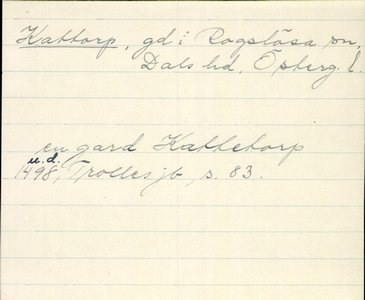 Kattorp, gd i Rogslösa sn,
Dals hd, Österg. l.
en gard Kattetorp
u.d.
1498, Trolles jb, s. 83.